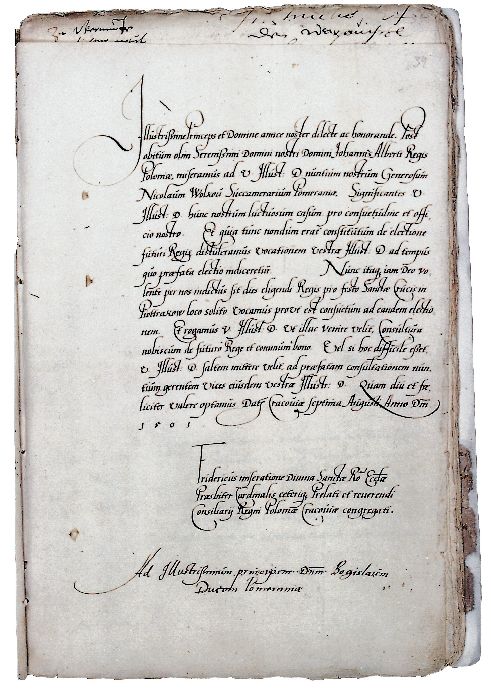 Illustrissime Princeps et Domine amice noster dilecte ac honorande. Post
obitum olim Serenissimi Domini nostri Domini Johannis Alberti Regis
Poloniæ, miseramus ad V. Illust: D. nuntium nostrum Generosum
Nicolaum Wolsky Succamerarium Pomeraniæ. Significantes V.
Illust: D. hunc nostrum luctuosum casum pro consuetudine et offi,
cio nostro. Et quia tunc nondum erat constitutum de electione
futuri Regis, distuleramus vocationem vestræ Illust: D. ad tempus
quo præfata electio indiceretur. Nunc itaq, iam Deo vo,
lente per nos indictus sit dies eligendi Regis pro festo Sanctæ Crucis in
Piottrkow loco solito vocamus prout est consuetum ad eandem electio
nem. Et rogamus V. Illust: D. ut illuc venire velit, Consultura
nobiscum de futuro Rege et communi bono. Vel si hoc difficile esset,
V. Illust: D. saltem mittere velit ad præfatam consultationem nun,
tium gerentem vices eiusdem vestræ Illust: D. Quam diu et fœ,
liciter valere optamus. Dat: Cracoviæ septima Augusti Anno Dni
1501
Fridericus miseratione Divina Sanctæ Ro: Ecclæ
Præsbiter Cardinalis, ceteriq, Prelati et reverendi
Consiliarij Regni Poloniæ Cracoviæ congregati.
Ad Illustrissimum principem Dnm Bogislaum
Ducem Pomeraniæ